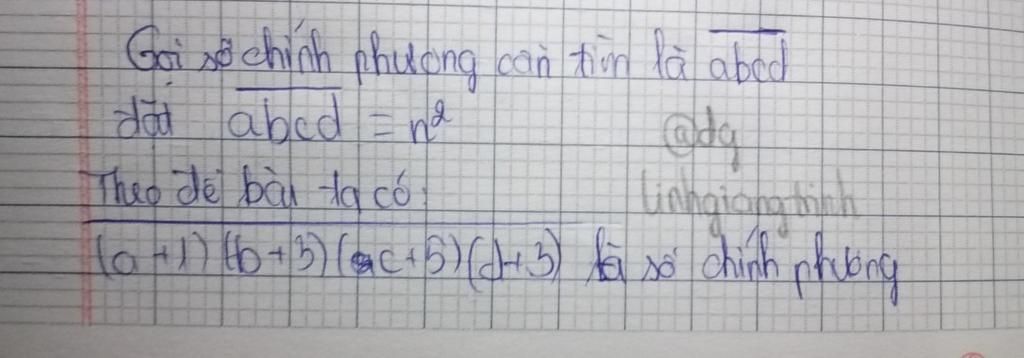 Gọi số chính phương cần tìm là abcd
đặt abcd = n²
@dg
Theo đề bài ta có:
linhgiangtrinh
(a+1)(b+3)(c+5)(d+3) là số chính phương